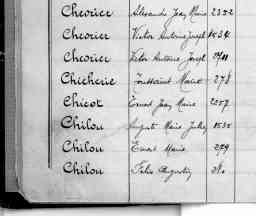 Cheorier Alexandre Jean Marie 2352
Cheorier Victor Antoine Joseph 1534
Cheorier Victor Antoine Joseph
Chicherie Toussaint Marie 278
Chicot Ernest Jean Marie 2257
Chilou Auguste Marie Julien 1535
Chilou Ernest Marie 279
Chilou Félix Augustin